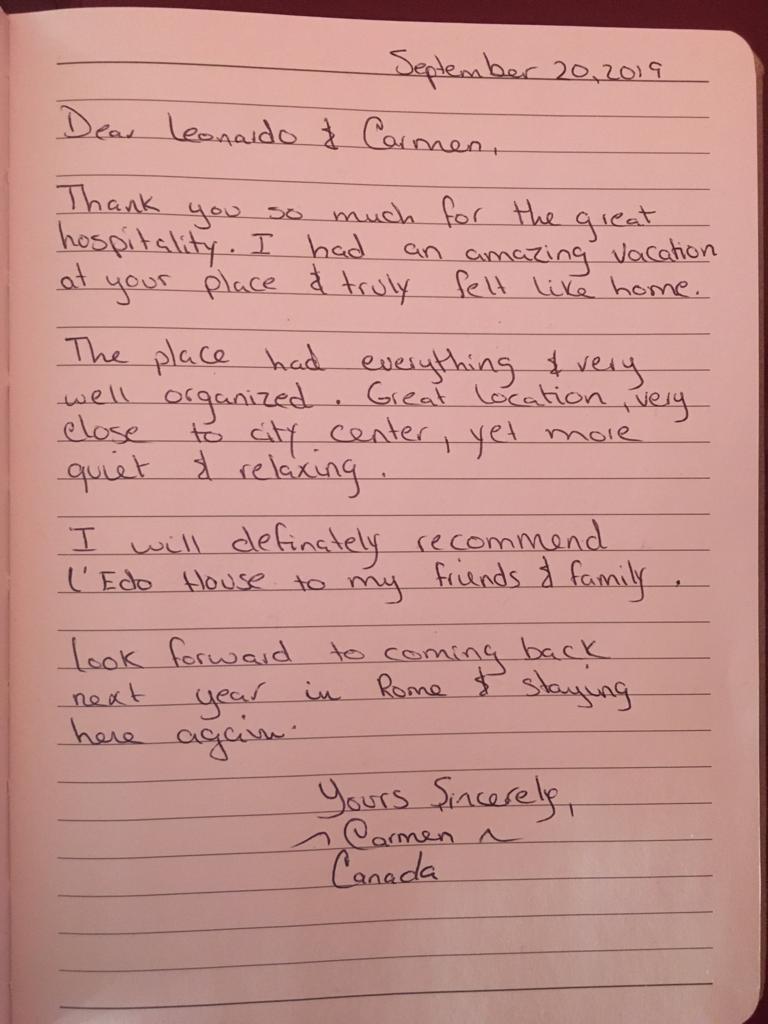 September 20, 2019
Dear Leonardo & Carmen,
Thank you so much for the great
hospitality. I had an amazing vacation
at your place & truly felt like home.
The place had everything & very
well organized. Great location, very
close to city center, yet more
quiet & relaxing.
I will definately recommend
L'Edo House to my friends & family.
Look forward to coming back
next year in Rome & staying
here again.
Yours Sincerely,
~ Carmen ~
Canada